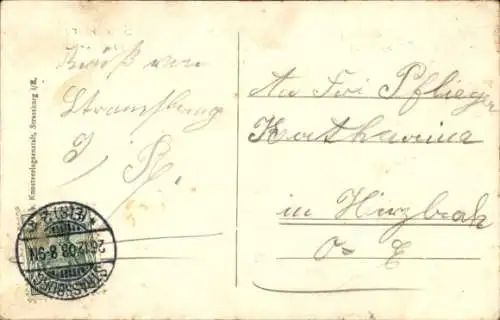 Gruß von
Strassburg
i/
An Frl Pflieger
Katharina
in Hirzbach
O-E
Kunstverlagsanstalt, Strassburg i/E.
STRASSBURG
26.12.08. 8-9N
* (ELS) 2 *